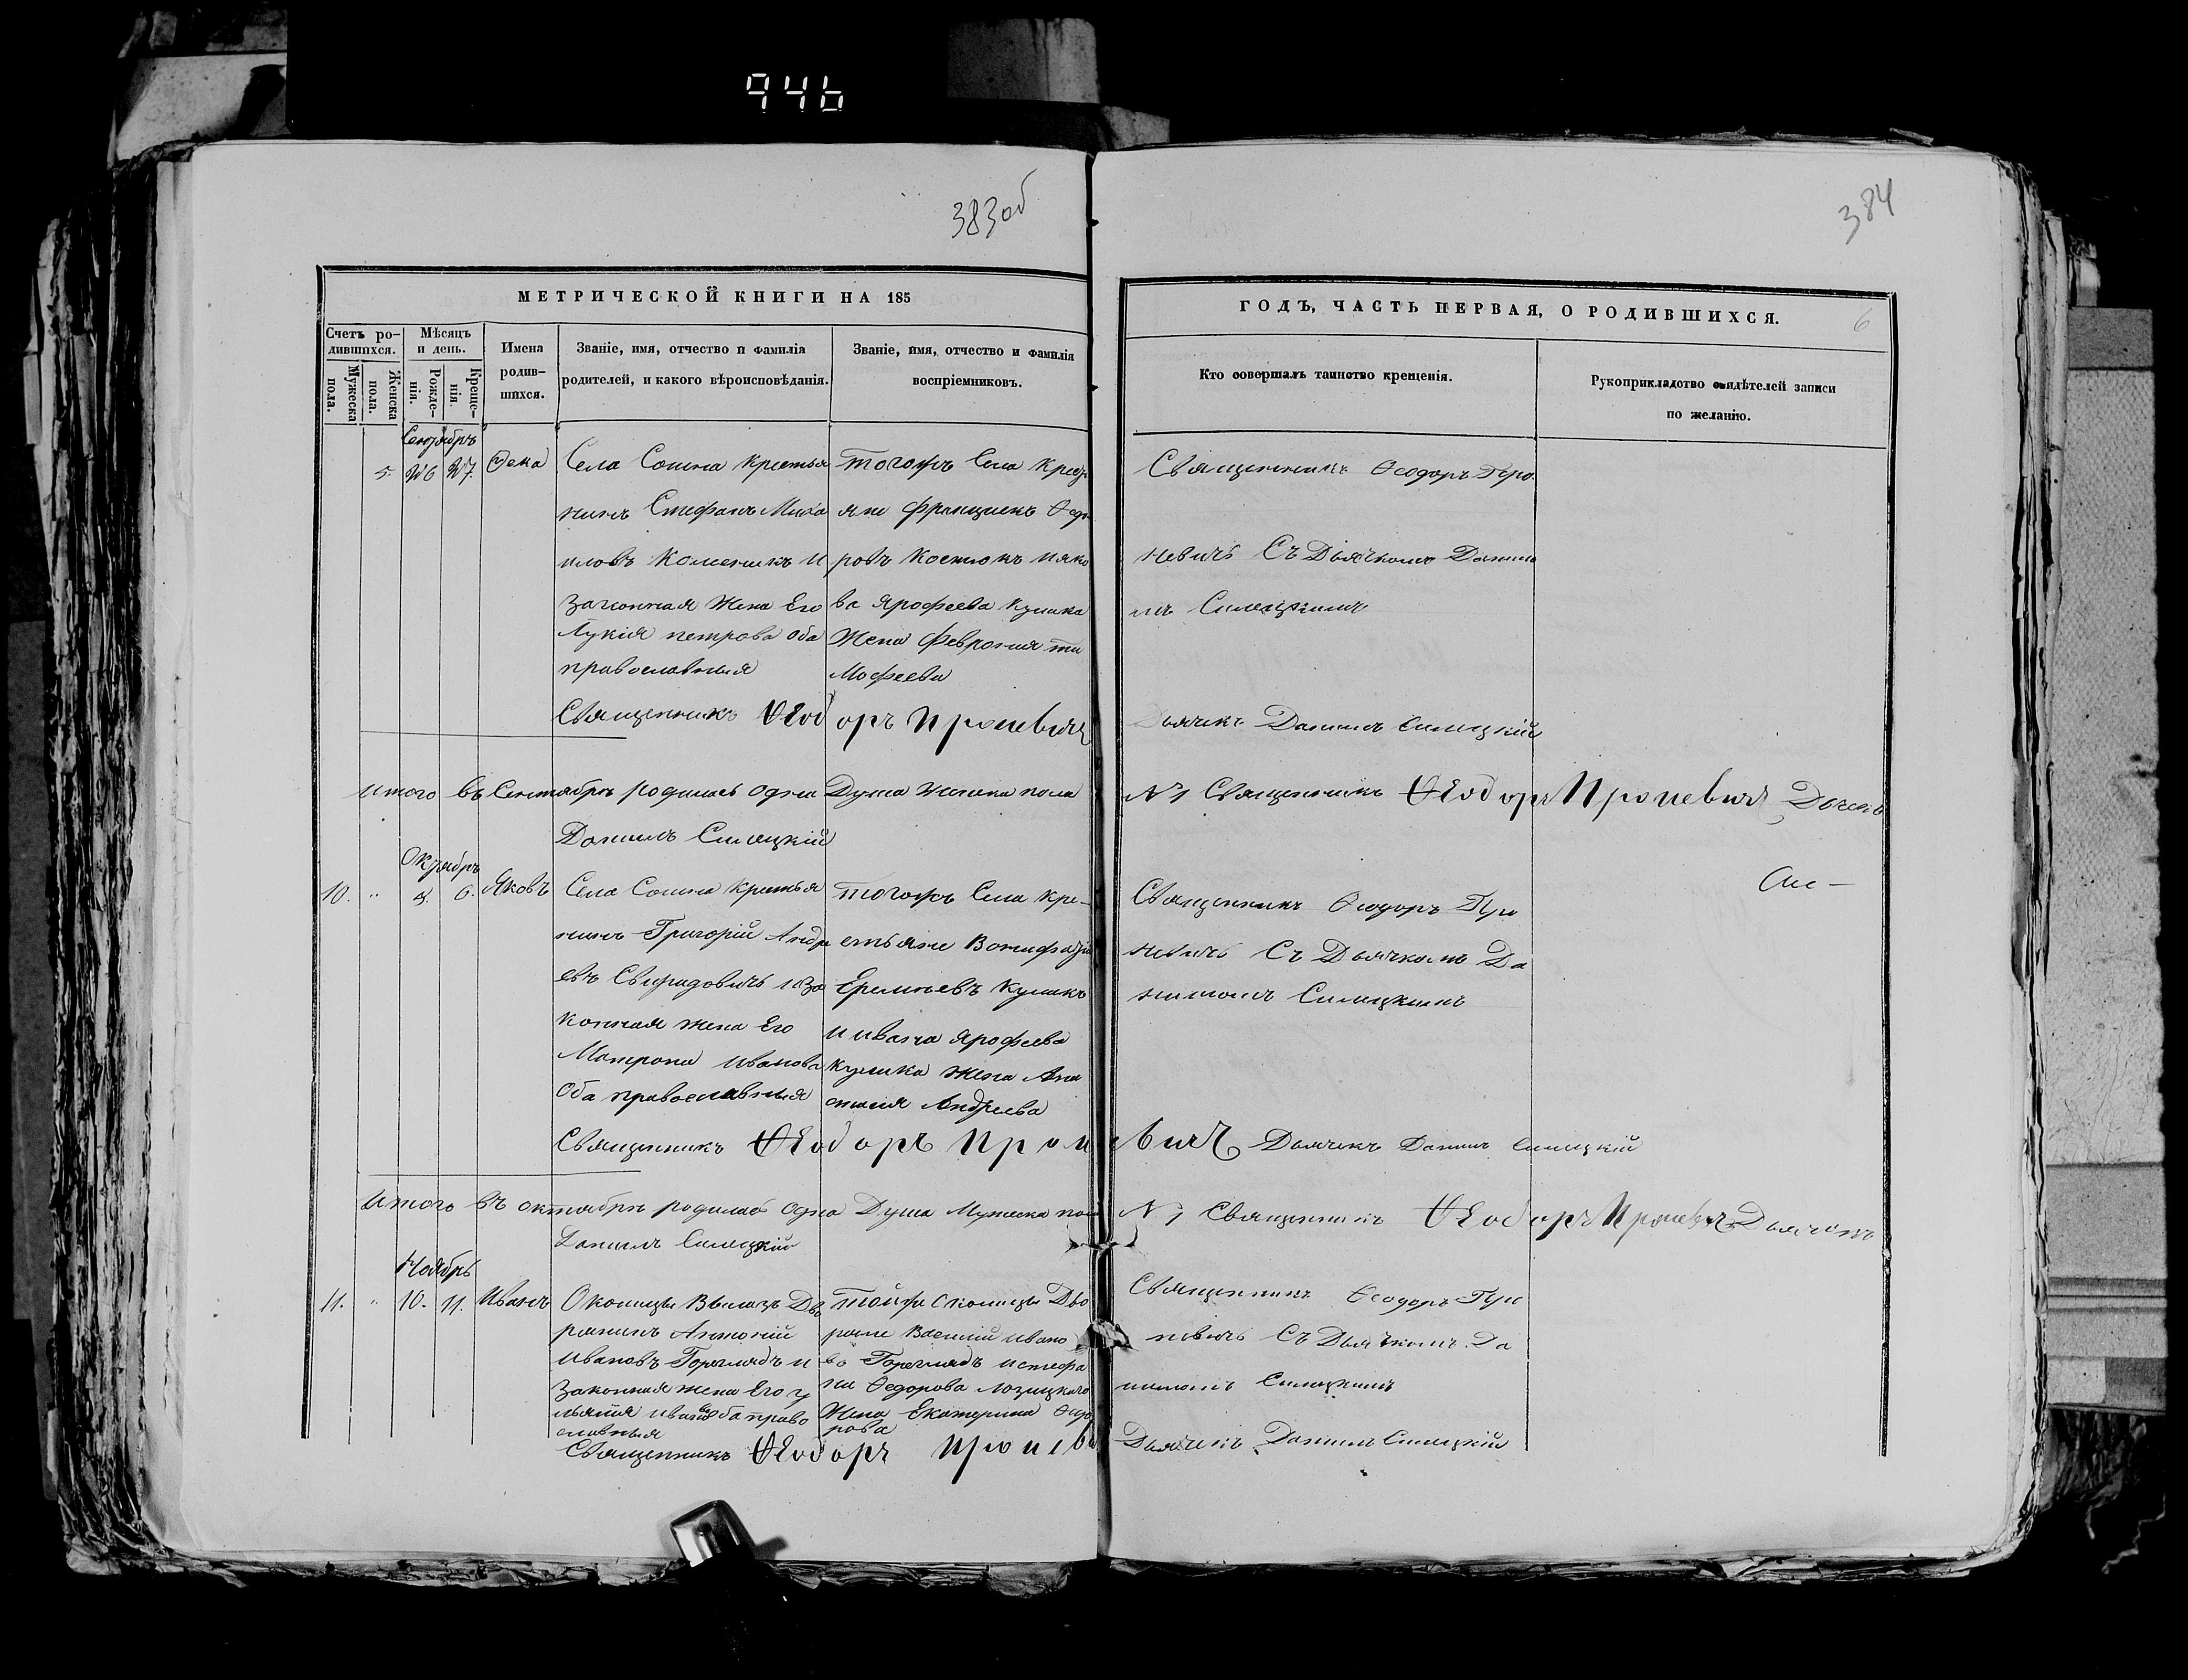 946
383об
384
МЕТРИЧЕСКОЙ КНИГИ НА 185
Счетъ ро-
дившихся.
Мѣсяцъ
и день.
Мужеска
пола.
Женска
пола.
Рожде-
нія.
Креще-
нія.
Имена
родив-
шихся.
Званіе, имя, отчество и фамилія
родителей, и какого вѣроисповѣданія.
Званіе, имя, отчество и фамилія
воспріемниковъ.
ГОДЪ, ЧАСТЬ ПЕРВАЯ, О РОДИВШИХСЯ.
6
Кто совершалъ таинство крещенія.
Рукоприкладство свидѣтелей записи
по желанію.
Сентябрь
5. 26 27.
Села Сошна крестья
нинъ Стефанъ Миха
иловъ и
законная жена Его
Лукія петрова оба
православныя
тогожъ Села крест
яне Францискъ Ѳедо
ровъ Костюкъ и яко
ва Ярофеева кулика
Жена Феврония ти
мофеева
Священникъ Ѳеодоръ Про
невичъ Съ Дьячкомъ Дании
ломъ Силецкимъ
Священникъ Ѳеодоръ Проневичъ
Дьячекъ Даниилъ Силецкій
Итого въ Сентябрѣ родилась одна Душа Женска пола
№ 1 Священникъ Ѳеодоръ Проневичъ Дьячекъ
Даниилъ Силецкій
Октябрь
10. " 5. 6. Яковъ
Села Сошна крестья
нинъ Григорій Андре
евъ Свиридовичъ и за
конная жена Его
Матрона Иванова
Оба православныя
тогожъ Села кре-
стьяне Вонифатій
Еремѣевъ Куликъ
и ивана Ярофеева
кулика жена Ана
стасия Андреева
Священникъ Ѳеодоръ Про
невичъ Съ Дьячкомъ Да
нииломъ Силецкимъ
Священникъ Ѳеодоръ Проневичъ Дьячекъ Даниилъ Силецкій
Итого въ октябрѣ родилась одна Душа Мужеска пола
№ 1 Священникъ Ѳеодоръ Проневичъ Дьячекъ
Даниилъ Силецкій
Ноябрь
11. " 10. 11. Иванъ
Околицы Вылазъ Дво
рянинъ Антоній
Ивановъ Гореглядъ и
законная жена Его у
льянія иванова оба право
славныя
тойже околицы Дво
ряне Василій ивано
въ Гореглядъ и стефа
на Ѳедорова Лозицкаго
Жена Екатерина Ѳедо
рова
Священникъ Ѳеодоръ Про
невичъ Съ Дьячкомъ Да
нииломъ Силецкимъ
Священникъ Ѳеодоръ Проневи
Дьячекъ Даниилъ Силецкій